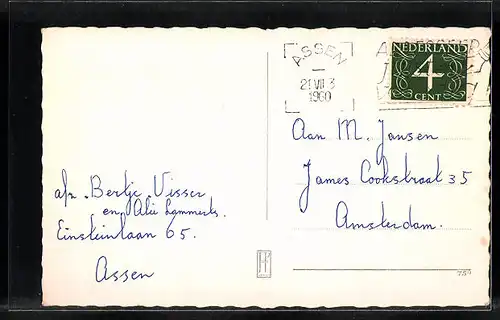 ASSEN
21 VII 3
1960
NEDERLAND
4
CENT
Aan M. Jansen
James Cookstraat 35
Amsterdam.
afz. Bertje Visser
en Alie Lammerts.
Einsteinlaan 65.
Assen